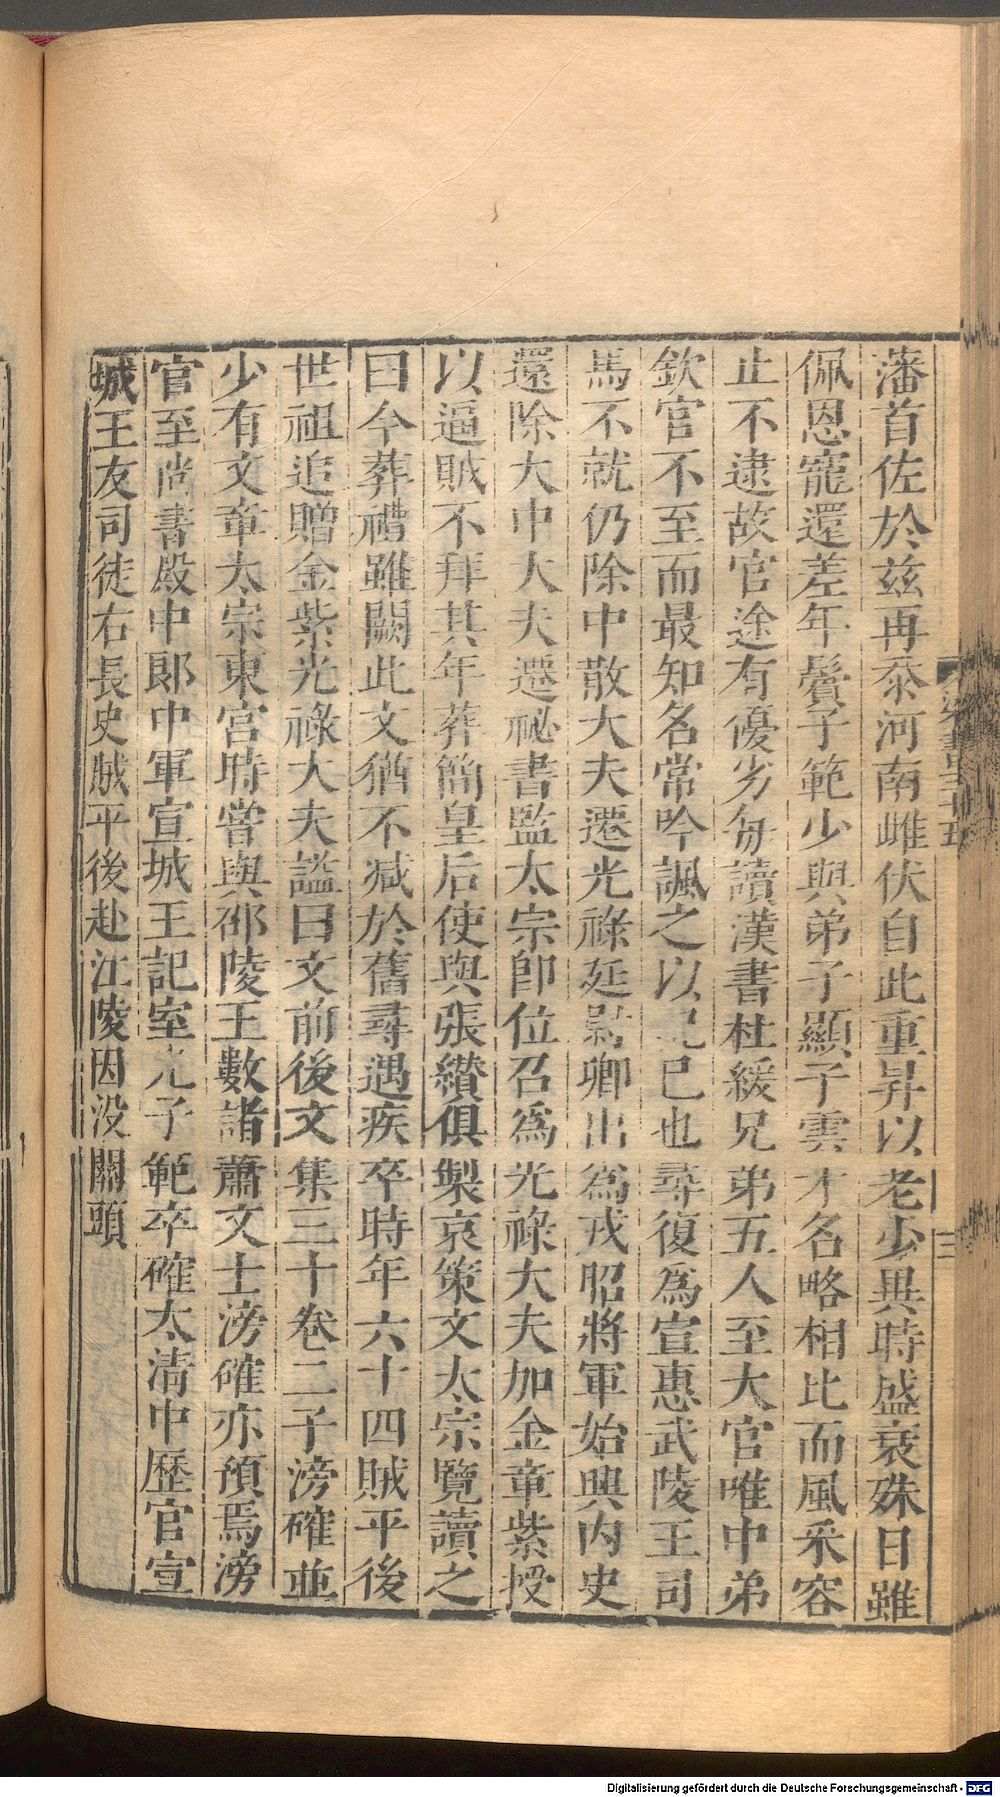 藩首佐於茲再忝河南雌伏自此重昇以老少異時盛衰殊日雖
佩恩寵還羞年鬢子範少與弟子顯子雲才名略相比而風采容
止不逮故宦途有優劣每讀漢書杜緩兄弟五人至大官唯中弟
欽官不至而最知名常吟諷之以況己也尋復爲宣惠武陵王司
馬不就仍除中散大夫遷光祿廷尉卿出爲戎昭將軍始興內史
還除大中大夫遷祕書監太宗即位召爲光祿大夫加金章紫授
以逼賊不拜其年葬簡皇后使與張纘俱製哀策文太宗覽讀之
曰今葬禮雖闕此文猶不減於舊尋遇疾卒時年六十四賊平後
世祖追贈金紫光祿大夫謚曰文前後文集三十卷二子滂確並
少有文章太宗東宮時嘗與邵陵王數諸蕭文士滂確亦預焉滂
官至尚書殿中郎中軍宣城王記室先子範卒確太清中歷官宣
城王友司徒右長史賊平後赴江陵因没關頭
梁書三十五
三
Digitalisierung gefördert durch die Deutsche Forschungsgemeinschaft - DFG